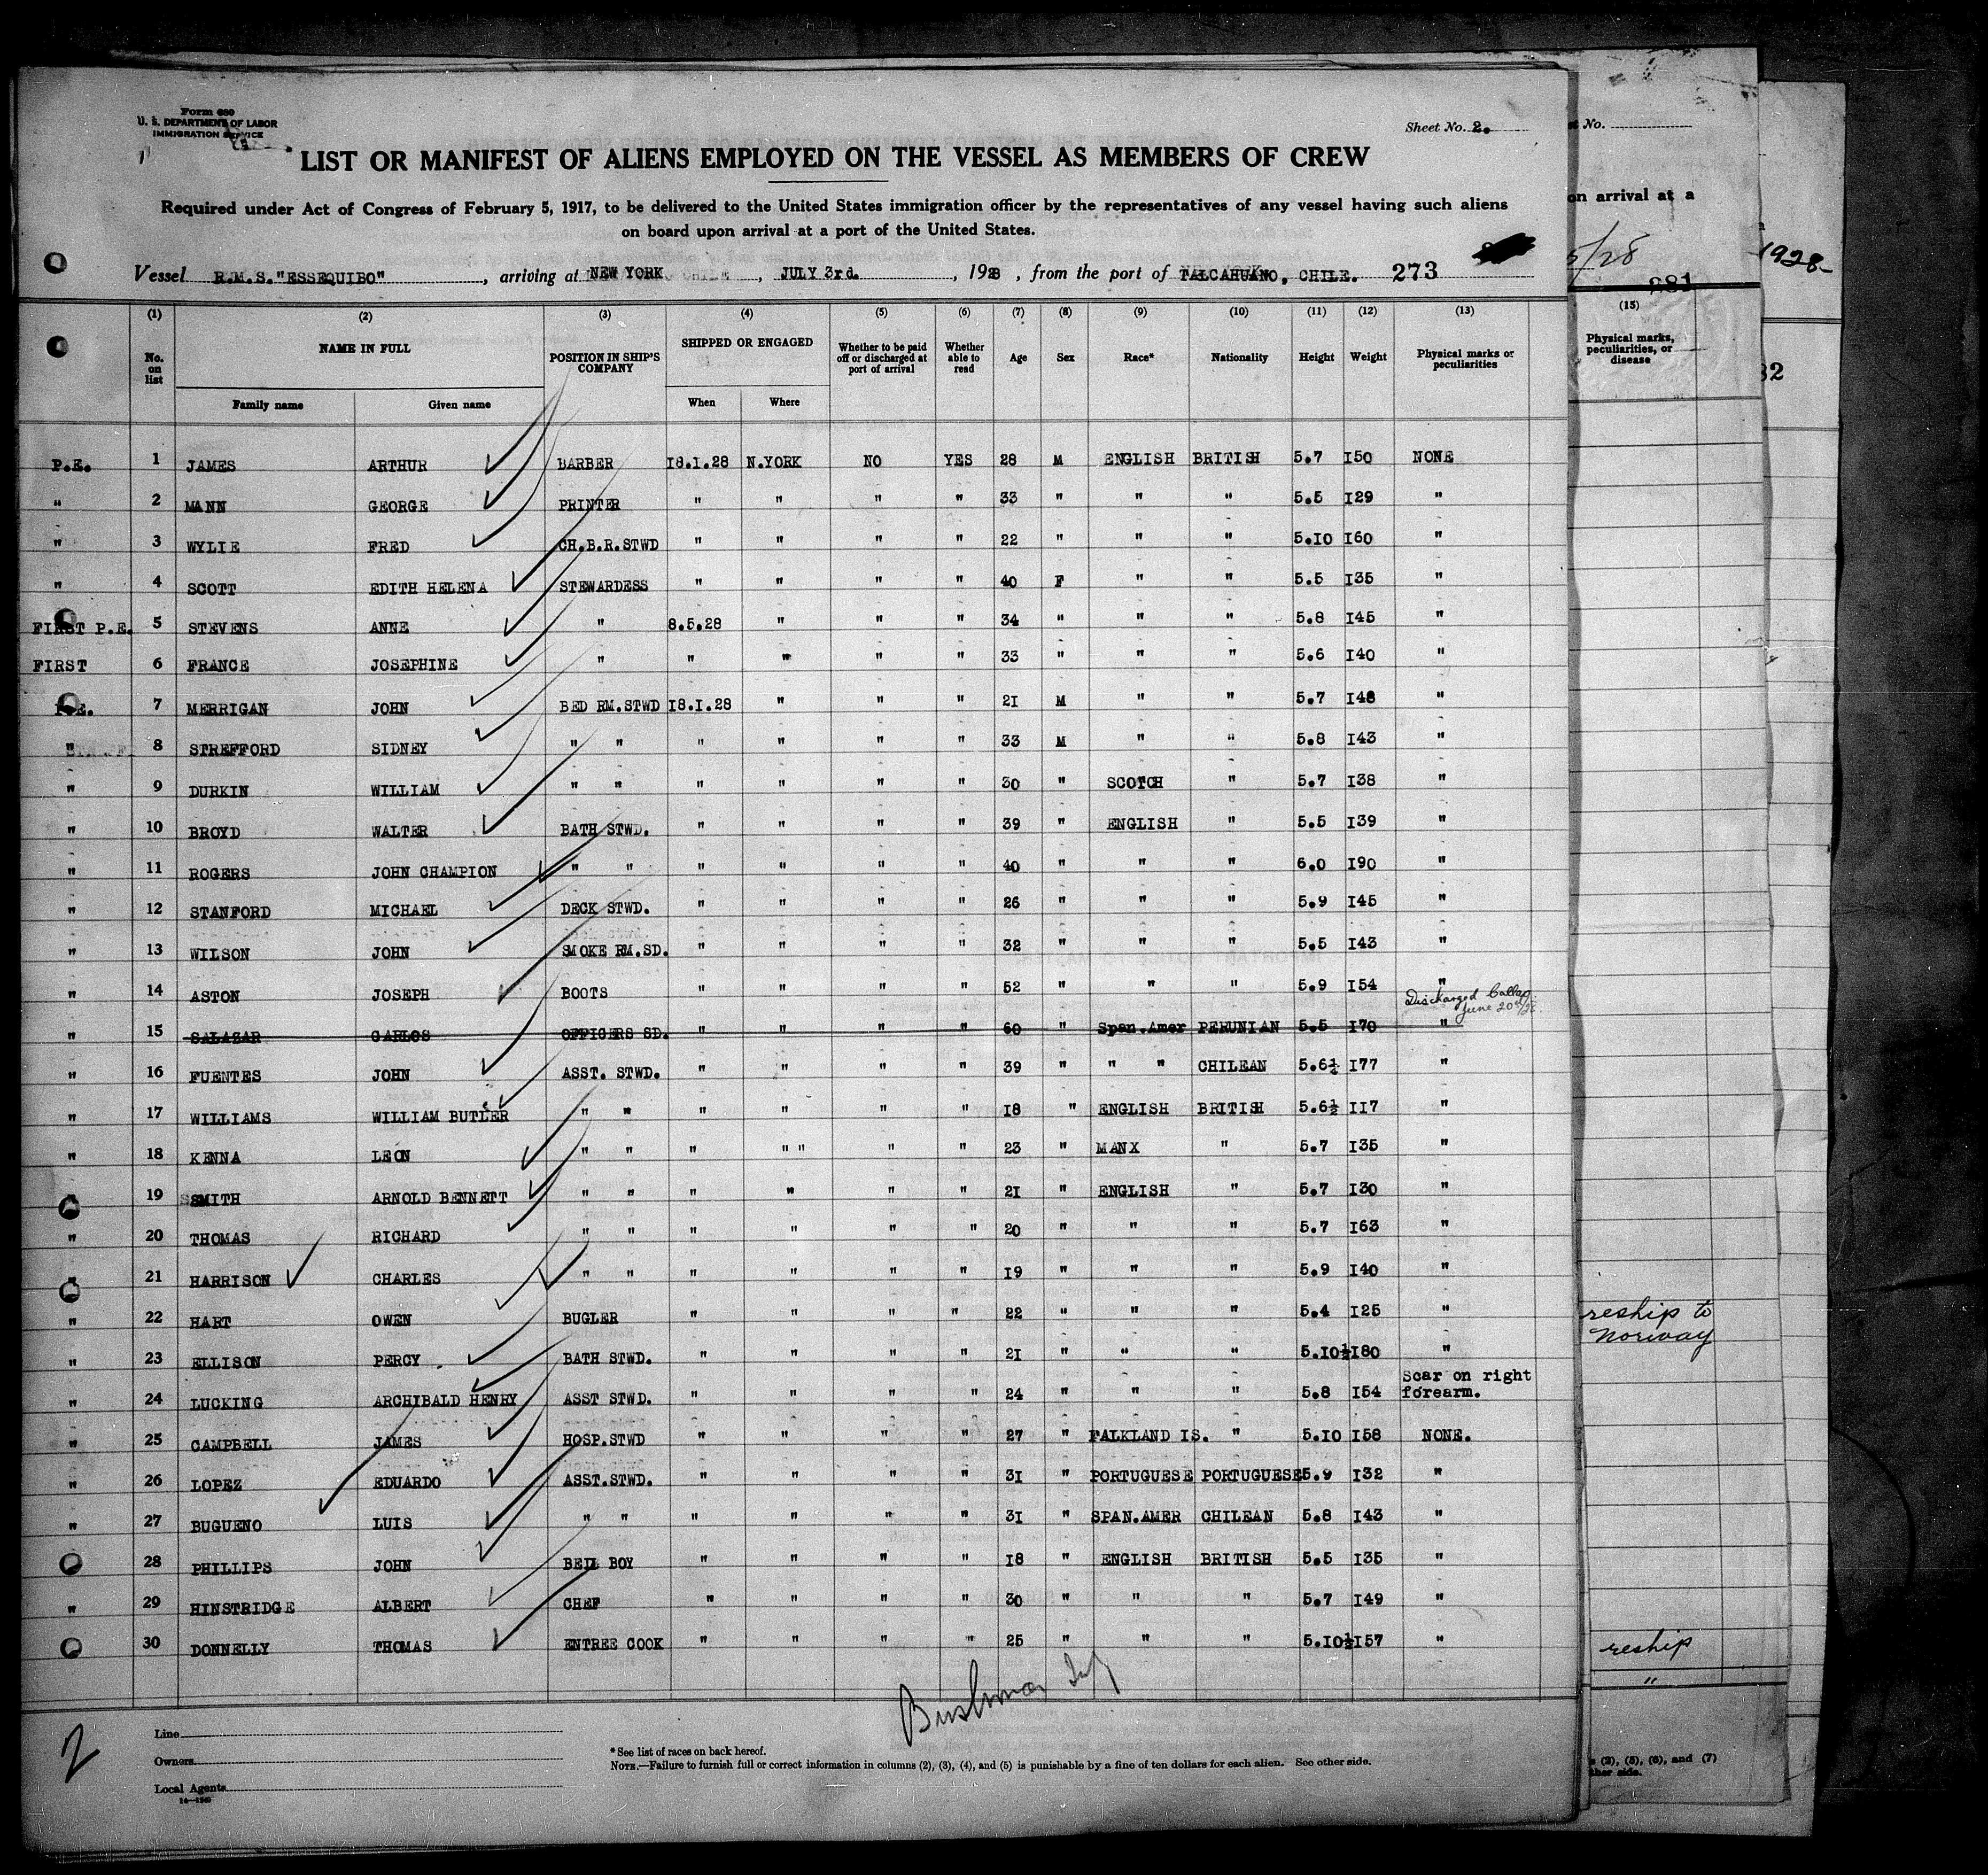 Form 680
U. S. DEPARTMENT OF LABOR
IMMIGRATION SERVICE
Sheet No. 2.
LIST OR MANIFEST OF ALIENS EMPLOYED ON THE VESSEL AS MEMBERS OF CREW
Required under Act of Congress of February 5, 1917, to be delivered to the United States immigration officer by the representatives of any vessel having such aliens
on board upon arrival at a port of the United States.
Vessel R.M.S. "ESSEQUIBO", arriving at NEW YORK, JULY 3rd., 1928, from the port of TALCAHUANO, CHILE. 273
(1) (2) (3) (4) (5) (6) (7) (8) (9) (10) (11) (12) (13)
No. on list NAME IN FULL Family name Given name POSITION IN SHIP'S COMPANY SHIPPED OR ENGAGED When Where Whether to be paid off or discharged at port of arrival Whether able to read Age Sex Race* Nationality Height Weight Physical marks or peculiarities
P.E. 1 JAMES ARTHUR BARBER 18.1.28 N.YORK NO YES 28 M ENGLISH BRITISH 5.7 150 NONE
" 2 MANN GEORGE PRINTER " " " " 33 " " " 5.5 129 "
" 3 WYLIE FRED CH.B.R.STWD " " " " 22 " " " 5.10 160 "
" 4 SCOTT EDITH HELENA STEWARDESS " " " " 40 F " " 5.5 135 "
FIRST P.E. 5 STEVENS ANNE " 8.5.28 " " " 34 " " " 5.8 145 "
FIRST 6 FRANCE JOSEPHINE " " " " " 33 " " " 5.6 140 "
P.E. 7 MERRIGAN JOHN BED RM.STWD 18.1.28 " " " 21 M " " 5.7 148 "
" 8 STREFFORD SIDNEY " " " " " " 33 M " " 5.8 143 "
" 9 DURKIN WILLIAM " " " " " " 30 " SCOTCH " 5.7 138 "
" 10 BROYD WALTER BATH STWD. " " " " 39 " ENGLISH " 5.5 139 "
" 11 ROGERS JOHN CHAMPION " " " " " " 40 " " " 6.0 190 "
" 12 STANFORD MICHAEL DECK STWD. " " " " 26 " " " 5.9 145 "
" 13 WILSON JOHN SMOKE RM.SD. " " " " 32 " " " 5.5 143 "
" 14 ASTON JOSEPH BOOTS " " " " 52 " " " 5.9 154 "
Discharged Callao
June 20th/28.
" 15 SALAZAR CARLOS OFFICERS SD. " " " " 60 " Span.Amer PERUNIAN 5.5 170 "
" 16 FUENTES JOHN ASST. STWD. " " " " 39 " " " CHILEAN 5.6½ 177 "
" 17 WILLIAMS WILLIAM BUTLER " " " " " " 18 " ENGLISH BRITISH 5.6½ 117 "
" 18 KENNA LEON " " " " " " " 23 " MANX " 5.7 135 "
" 19 SSMITH ARNOLD BENNETT " " " " " " 21 " ENGLISH " 5.7 130 "
" 20 THOMAS RICHARD " " " " " " 20 " " " 5.7 163 "
" 21 HARRISON CHARLES " " " " " " 19 " " " 5.9 140 "
" 22 HART OWEN BUGLER " " " " 22 " " " 5.4 125 "
" 23 ELLISON PERCY . BATH STWD. " " " " 21 " " " 5.10½ 180 "
" 24 LUCKING ARCHIBALD HENRY ASST STWD. " " " " 24 " " " 5.8 154 Scar on right forearm.
" 25 CAMPBELL JAMES HOSP.STWD " " " " 27 " FALKLAND IS. " 5.10 158 NONE.
" 26 LOPEZ EDUARDO ASST.STWD. " " " " 31 " PORTUGUESE PORTUGUESE 5.9 132 "
" 27 BUGUENO LUIS " " " " " " 31 " SPAN.AMER CHILEAN 5.8 143 "
28 PHILLIPS JOHN BELL BOY " " " " 18 " ENGLISH BRITISH 5.5 135 "
" 29 HINSTRIDGE ALBERT CHEF " " " " 30 " " " 5.7 149 "
30 DONNELLY THOMAS ENTREE COOK " " " " 25 " " " 5.10½ 157 "
2
Line
Owners
Local Agents
*See list of races on back hereof.
NOTE.—Failure to furnish full or correct information in columns (2), (3), (4), and (5) is punishable by a fine of ten dollars for each alien. See other side.
No.
on arrival at a
5/28
1928-
681
(15)
Physical marks,
peculiarities, or
disease
32
reship to
Norway
reship
"
(2), (5), (6), and (7)
other side.